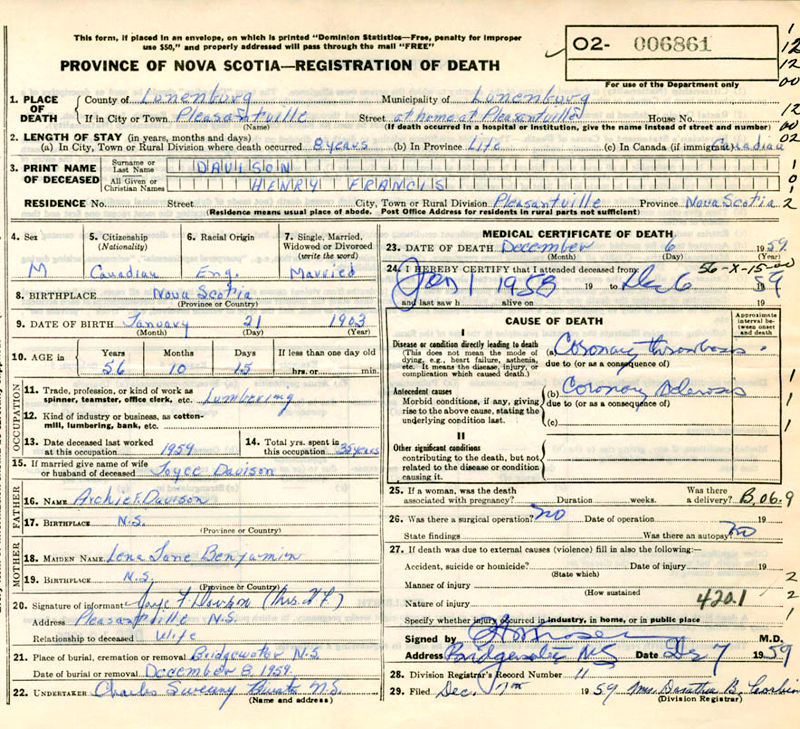 This form, if placed in an envelope, on which is printed "Dominion Statistics—Free, penalty for improper
use $50," and properly addressed will pass through the mail "FREE"
O2- 006861
For use of the Department only
PROVINCE OF NOVA SCOTIA—REGISTRATION OF DEATH
1. PLACE OF DEATH { County of Lunenburg Municipality of Lunenburg
If in City or Town Pleasantville Street at home at Pleasantville House No.
(Name) (If death occurred in a hospital or institution, give the name instead of street and number)
2. LENGTH OF STAY (in years, months and days)
(a) In City, Town or Rural Division where death occurred 8 years (b) In Province Life (c) In Canada (if immigrant) Canadian
3. PRINT NAME OF DECEASED { Surname or Last Name DAVISON
All Given or Christian Names HENRY FRANCIS
RESIDENCE No. Street City, Town or Rural Division Pleasantville Province Nova Scotia
(Residence means usual place of abode. Post Office Address for residents in rural parts not sufficient)
4. Sex M
5. Citizenship (Nationality) Canadian
6. Racial Origin Eng.
7. Single, Married, Widowed or Divorced (write the word) Married
8. BIRTHPLACE Nova Scotia
(Province or Country)
9. DATE OF BIRTH January 21 1903
(Month) (Day) (Year)
10. AGE in Years 56 Months 10 Days 15 If less than one day old hrs. or min.
OCCUPATION
11. Trade, profession, or kind of work as spinner, teamster, office clerk, etc. Lumbering
12. Kind of industry or business, as cotton-mill, lumbering, bank, etc.
13. Date deceased last worked at this occupation 1959
14. Total yrs. spent in this occupation 35 years
15. If married give name of wife or husband of deceased Joyce Davison
FATHER
16. NAME Archie F. Davison
17. BIRTHPLACE N.S.
(Province or Country)
MOTHER
18. MAIDEN NAME Lena Jane Benjamin
19. BIRTHPLACE N.S.
(Province or Country)
20. Signature of informant Joyce F Davison (Mrs. H F)
Address Pleasantville N.S.
Relationship to deceased Wife
21. Place of burial, cremation or removal Bridgewater N.S.
Date of burial or removal December 8, 1959
22. UNDERTAKER Charles Sweeny N.S.
(Name and address)
MEDICAL CERTIFICATE OF DEATH
23. DATE OF DEATH December 6 1959
(Month) (Day) (Year)
24. I HEREBY CERTIFY that I attended deceased from: 56-X-15-00
Jan 1 1958 19 to Dec 6 1959
and last saw h alive on 19
CAUSE OF DEATH
Approximate interval between onset and death
I
Disease or condition directly leading to death
(This does not mean the mode of dying, e.g., heart failure, asthenia, etc. It means the disease, injury, or complication which caused death.)
(a) Coronary thrombosis
due to (or as a consequence of)
Antecedent causes
Morbid conditions, if any, giving rise to the above cause, stating the underlying condition last.
(b) Coronary sclerosis
due to (or as a consequence of)
(c)
II
Other significant conditions
contributing to the death, but not related to the disease or condition causing it.
25. If a woman, was the death associated with pregnancy? Duration weeks. Was there a delivery? B.06.9
26. Was there a surgical operation? no Date of operation 19
State findings Was there an autopsy? no
27. If death was due to external causes (violence) fill in also the following:—
Accident, suicide or homicide? Date of injury 19
(State which)
Manner of injury
(How sustained)
Nature of injury 420.1
Specify whether injury occurred in industry, in home, or in public place
Signed by M.D.
Address Bridgewater NS Date Dec 7 1959
28. Division Registrar's Record Number 11
29. Filed Dec. 7th 1959 Mrs. Dorothea B.
(Division Registrar)